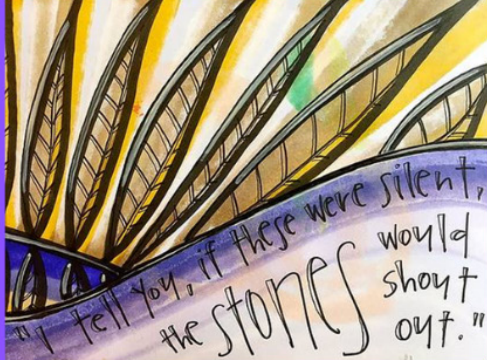 "I tell you, if these were silent,
the stones would
shout
out."